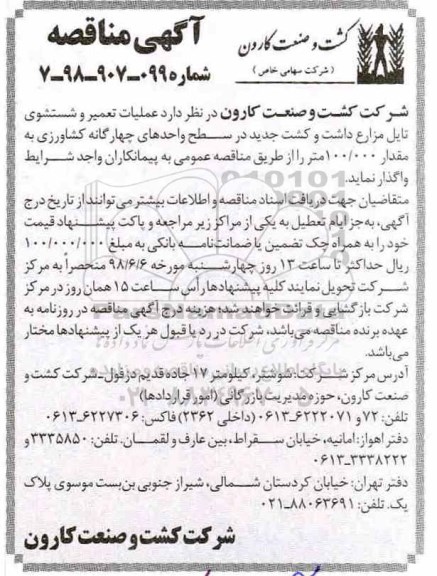 آگهی مناقصه
شماره ۰۹۹-۹۰۷-۹۸-۷
کشت و صنعت کارون
(شرکت سهامی خاص)
شرکت کشت و صنعت کارون در نظر دارد عملیات تعمیر و شستشوی
تایل مزارع داشت و کشت جدید در سطح واحدهای چهارگانه کشاورزی به
مقدار ۱۰۰/۰۰۰ متر را از طریق مناقصه عمومی به پیمانکاران واجد شرایط
واگذار نماید.
متقاضیان جهت دریافت اسناد مناقصه و اطلاعات بیشتر می‌توانند از تاریخ درج
آگهی، به‌جز ایام تعطیل به یکی از مراکز زیر مراجعه و پاکت پیشنهاد قیمت
خود را به همراه چک تضمین یا ضمانت‌نامه بانکی به مبلغ ۱۰۰/۰۰۰/۰۰۰
ریال حداکثر تا ساعت ۱۳ روز چهارشنبه مورخه ۹۸/۶/۶ منحصراً به مرکز
شرکت تحویل نمایند کلیه پیشنهادها رأس ساعت ۱۵ همان روز در مرکز
شرکت بازگشایی و قرائت خواهند شد؛ هزینه درج آگهی مناقصه در روزنامه به
عهده برنده مناقصه می‌باشد، شرکت در رد یا قبول هر یک از پیشنهادها مختار
می‌باشد.
آدرس مرکز شرکت: شوشتر، کیلومتر ۱۷ جاده قدیم دزفول-شرکت کشت و
صنعت کارون، حوزه مدیریت بازرگانی (امور قراردادها)
تلفن: ۷۲ و ۶۲۲۲۰۷۱-۰۶۱۳ (داخلی ۲۳۶۲) فاکس: ۶۲۲۷۳۰۶-۰۶۱۳
دفتر اهواز: امانیه، خیابان سقراط، بین عارف و لقمان. تلفن: ۳۳۳۵۸۵۰ و
۳۳۳۸۲۲۲-۰۶۱۳
دفتر تهران: خیابان کردستان شمالی، شیراز جنوبی بن‌بست موسوی پلاک
یک. تلفن: ۸۸۰۶۳۶۹۱-۰۲۱
شرکت کشت و صنعت کارون